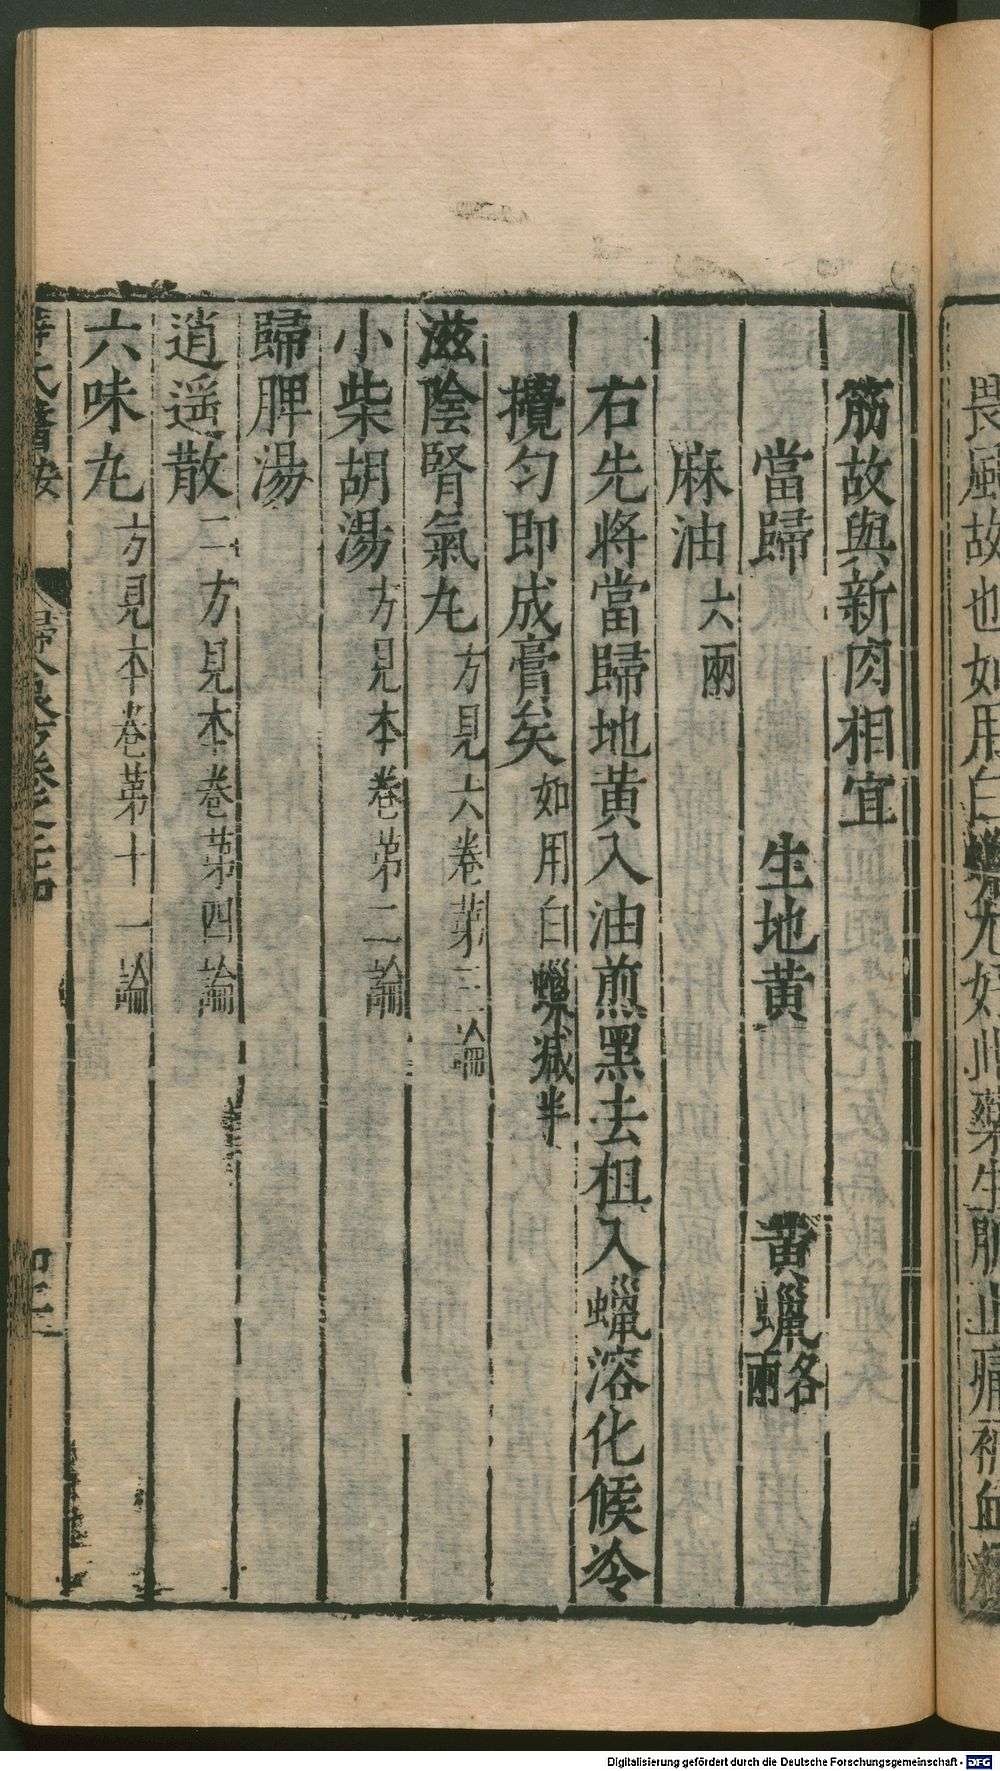 畏風故也如用白蠟尤好此藥生肌止痛補血續
筋故與新肉相宜
當歸　生地黃　黃蠟各
兩
麻油六兩
右先將當歸地黃入油煎黑去柤入蠟溶化候冷
攪勻即成膏矣如用白蠟減半
滋陰腎氣丸方見六卷第三論
小柴胡湯方見本卷第二論
歸脾湯
逍遙散二方見本卷第四論
六味丸方見本卷第十一論
Digitalisierung gefördert durch die Deutsche Forschungsgemeinschaft - DFG